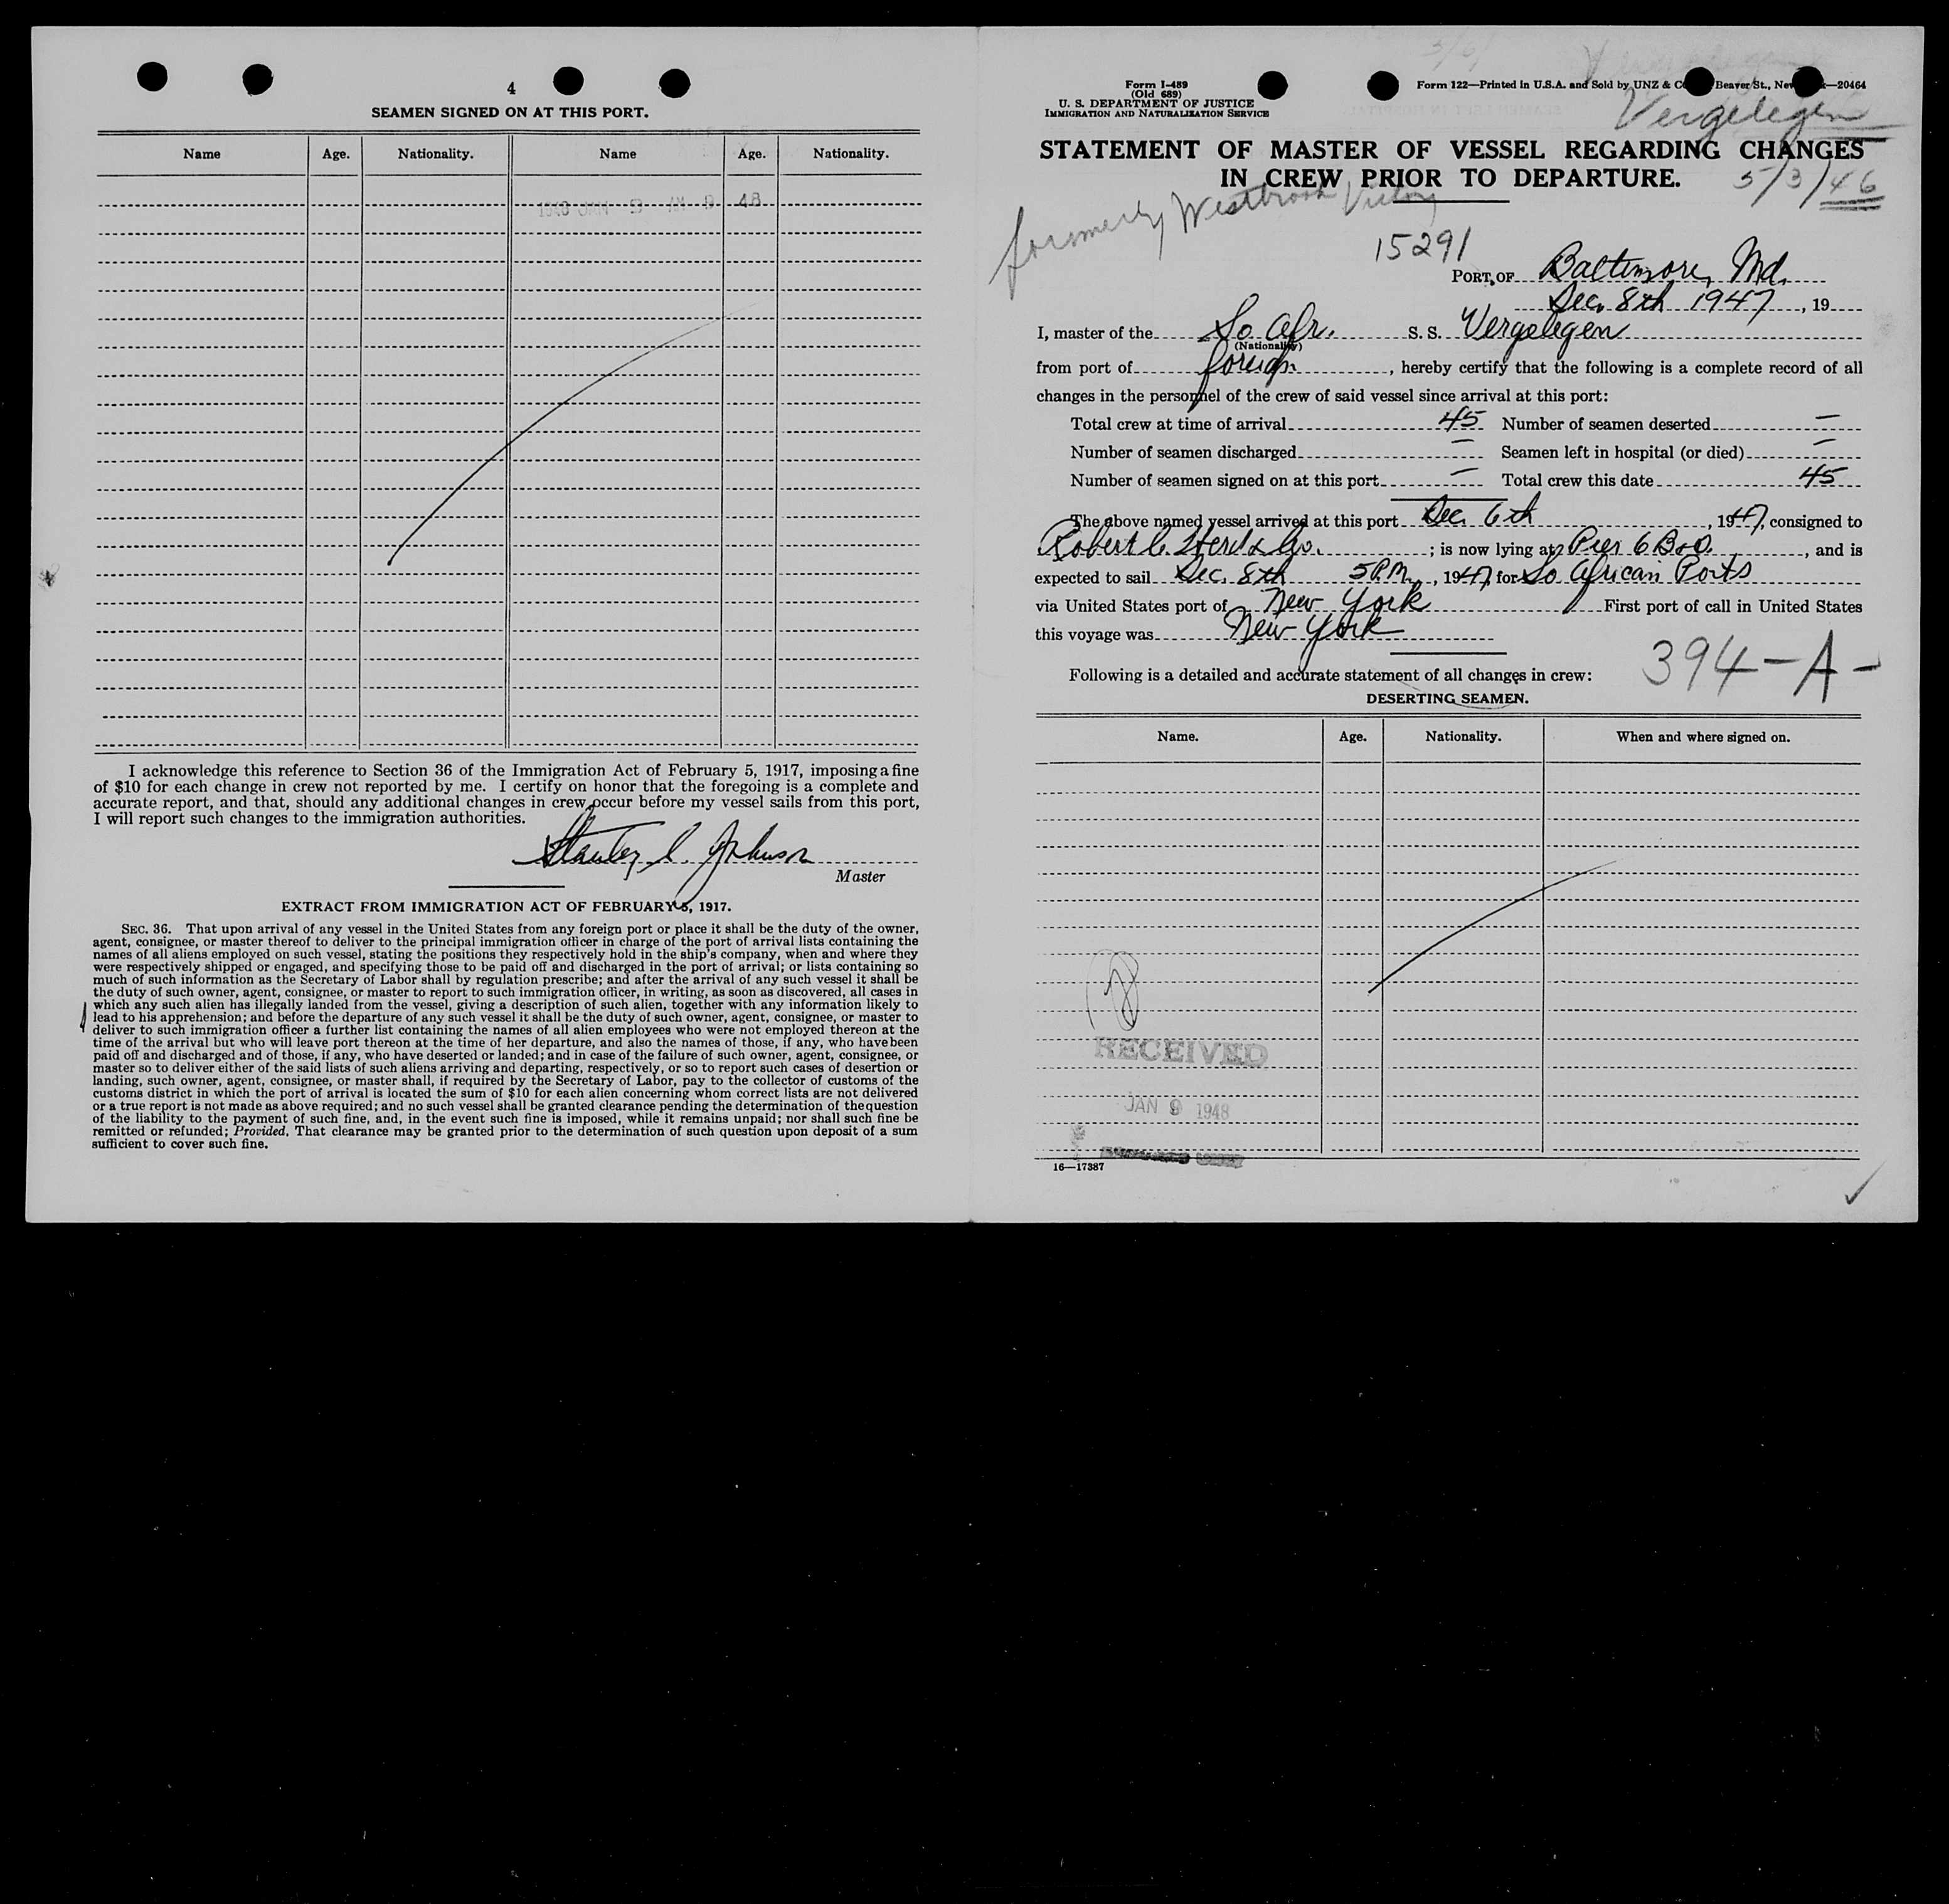 4
SEAMEN SIGNED ON AT THIS PORT.
Name Age. Nationality. Name Age. Nationality.
JAN 9 48
I acknowledge this reference to Section 36 of the Immigration Act of February 5, 1917, imposing a fine
of $10 for each change in crew not reported by me. I certify on honor that the foregoing is a complete and
accurate report, and that, should any additional changes in crew occur before my vessel sails from this port,
I will report such changes to the immigration authorities.
Stanley C. Johnson
Master
EXTRACT FROM IMMIGRATION ACT OF FEBRUARY 5, 1917.
SEC. 36. That upon arrival of any vessel in the United States from any foreign port or place it shall be the duty of the owner,
agent, consignee, or master thereof to deliver to the principal immigration officer in charge of the port of arrival lists containing the
names of all aliens employed on such vessel, stating the positions they respectively hold in the ship's company, when and where they
were respectively shipped or engaged, and specifying those to be paid off and discharged in the port of arrival; or lists containing so
much of such information as the Secretary of Labor shall by regulation prescribe; and after the arrival of any such vessel it shall be
the duty of such owner, agent, consignee, or master to report to such immigration officer, in writing, as soon as discovered, all cases in
which any such alien has illegally landed from the vessel, giving a description of such alien, together with any information likely to
lead to his apprehension; and before the departure of any such vessel it shall be the duty of such owner, agent, consignee, or master to
deliver to such immigration officer a further list containing the names of all alien employees who were not employed thereon at the
time of the arrival but who will leave port thereon at the time of her departure, and also the names of those, if any, who have been
paid off and discharged and of those, if any, who have deserted or landed; and in case of the failure of such owner, agent, consignee, or
master so to deliver either of the said lists of such aliens arriving and departing, respectively, or so to report such cases of desertion or
landing, such owner, agent, consignee, or master shall, if required by the Secretary of Labor, pay to the collector of customs of the
customs district in which the port of arrival is located the sum of $10 for each alien concerning whom correct lists are not delivered
or a true report is not made as above required; and no such vessel shall be granted clearance pending the determination of the question
of the liability to the payment of such fine, and, in the event such fine is imposed, while it remains unpaid; nor shall such fine be
remitted or refunded; Provided, That clearance may be granted prior to the determination of such question upon deposit of a sum
sufficient to cover such fine.
Form I-489
(Old 689)
U. S. DEPARTMENT OF JUSTICE
IMMIGRATION AND NATURALIZATION SERVICE
Form 122—Printed in U.S.A. and Sold by UNZ & Beaver St., —20464
Vergelegen
STATEMENT OF MASTER OF VESSEL REGARDING CHANGES
IN CREW PRIOR TO DEPARTURE.
5/3/46
formerly Westbrook Victory
15291
PORT OF Baltimore, Md.
Dec. 8th 1947, 19
I, master of the So Afr. S. S. Vergelegen
(Nationality)
from port of foreign, hereby certify that the following is a complete record of all
changes in the personnel of the crew of said vessel since arrival at this port:
Total crew at time of arrival 45 Number of seamen deserted —
Number of seamen discharged — Seamen left in hospital (or died) —
Number of seamen signed on at this port — Total crew this date 45
The above named vessel arrived at this port Dec. 6th, 1947, consigned to
Robert C. Herd & Co.; is now lying at Pier 6 B&O, and is
expected to sail Dec. 8th 5 P.M., 1947, for So African Ports
via United States port of New York First port of call in United States
this voyage was New York
Following is a detailed and accurate statement of all changes in crew:
394-A-
DESERTING SEAMEN.
Name. Age. Nationality. When and where signed on.
RECEIVED
JAN 9 1948
16—17387